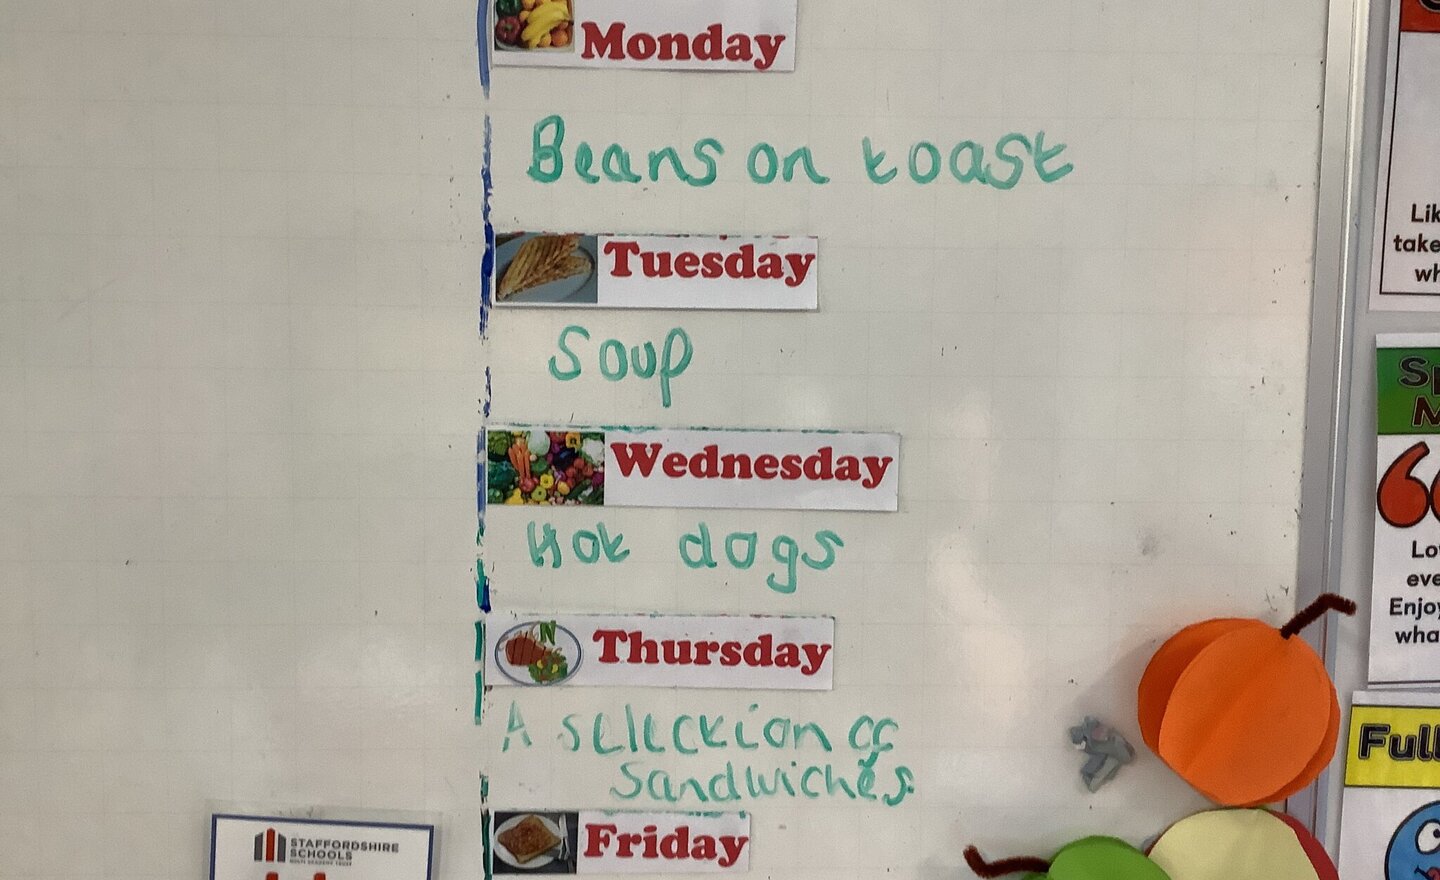 Monday
Beans on toast
Tuesday
Soup
Wednesday
Hot dogs
Thursday
A selection of
sandwiches.
Friday
STAFFORDSHIRE
SCHOOLS
MULTI ACADEMY TRUST
Lik
take
wh
Sp
M
Lo
eve
Enjoy
wha
Full